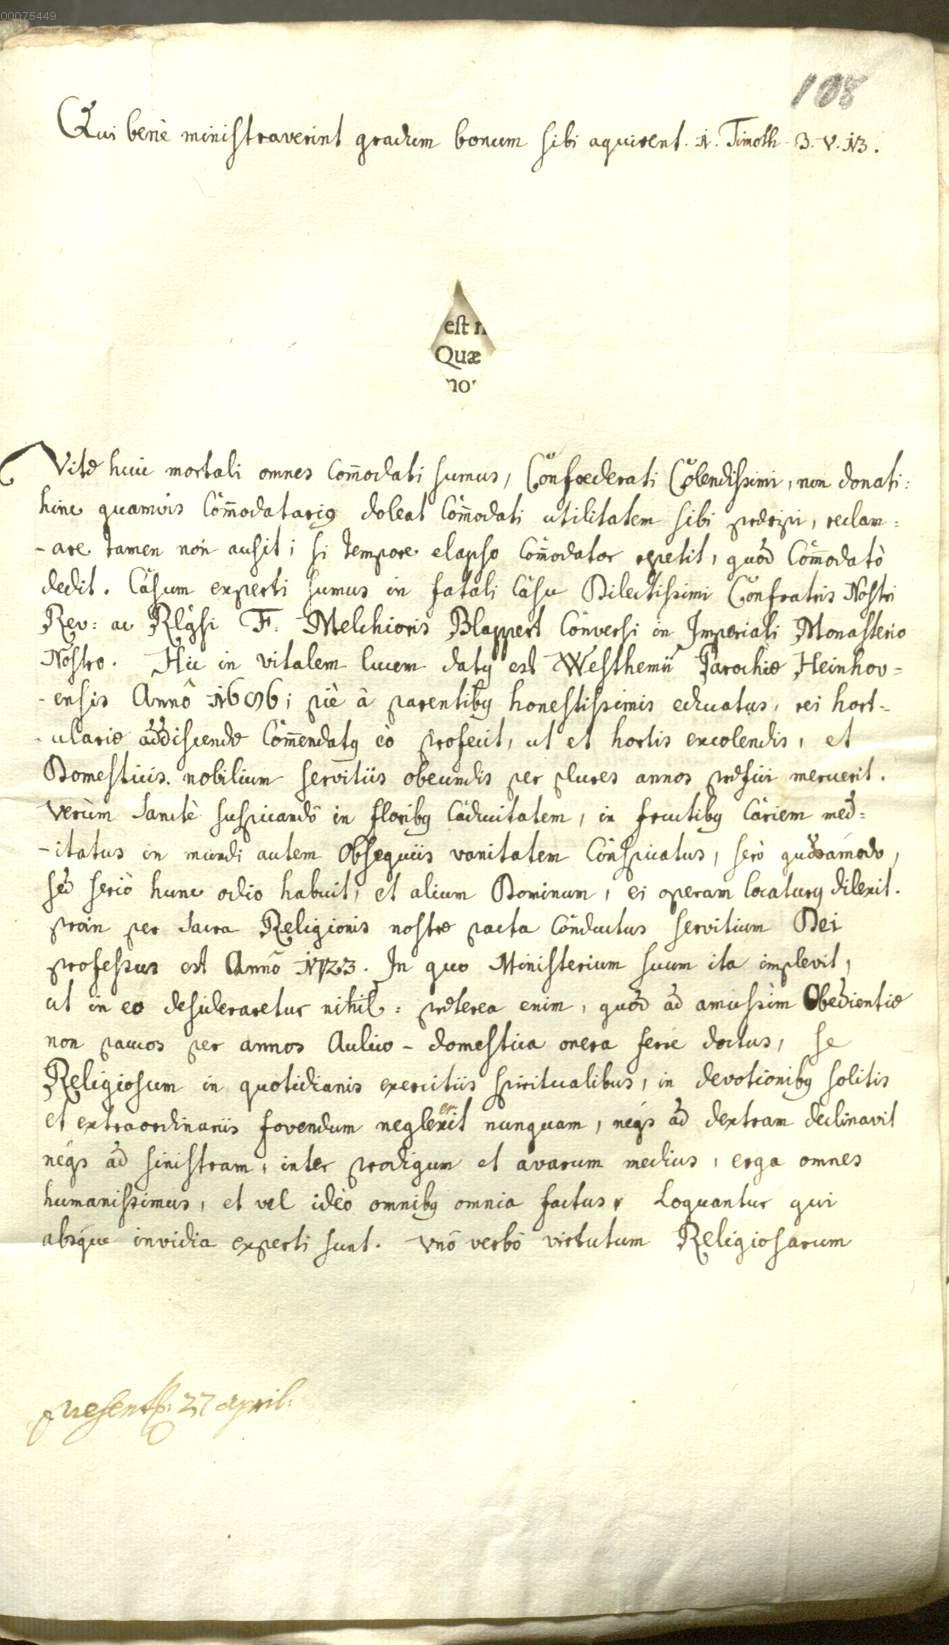 00075449
108
Qui benè ministraverint gradum bonum sibi aquirent. 1. Timoth. 3. V. 13.
est n
Quæ
no
Vitæ huic mortali omnes Com̄odati sumus, Confœderati Colendissimi, non donati:
hinc quamvis Com̄odatarius doleat Com̄odati utilitatem sibi præripi, reclam=
-are tamen non ausit; si tempore elapso Com̄odator repetit, quod Com̄odatò
dedit. Casum experti sumus in fatali Casu Dilectissimi Confratris Nostri
Rev: ac Rlgsi F. Melchioris Blappert Conversi in Imperiali Monasterio
Nostro. Hic in vitalem lucem datq est Westhemii Parochiæ Heinhov=
-ensis Annô 1696; piè â parentibq honestissimis educatus, rei hort-
-ulariæ addiscendæ Com̄endatq eò profecit, ut et hortis excolendis, et
Domesticis nobilium servitiis obeundis per plures annos præfici meruerit.
Verùm Sanctè suspicandô in floribq Caducitatem, in fructibq Cariem med=
-itatus in mundi autem Obsequiis vanitatem Conspicatus, serò quodamodo,
sed seriò hunc odio habuit, et alium Dominum, ei operam locaturq dilexit.
proin per Sacra Religionis nostræ pacta Conductus servitium Dei
professus est Annô 1723. In quo Ministerium suum ita implevit,
ut in eo desideraretur nihil: præterea enim, quod ad amussim Obedientiæ
non paucos per annos Aulico-domestica onera ferre doctus, se
Religiosum in quotidianis exercitiis spiritualibus, in devotionibq solitis
et extraordinariis fovendum neglexerit nunquam, neqs ad dextram declinavit
neqs ad sinistram, inter prodigum et avarum medius, erga omnes
humanissimus, et vel ideò omnibq omnia factus, Loquantur qui
absque invidia experti sunt. Vnô verbô virtutum Religiosarum
præsent: 27 april: